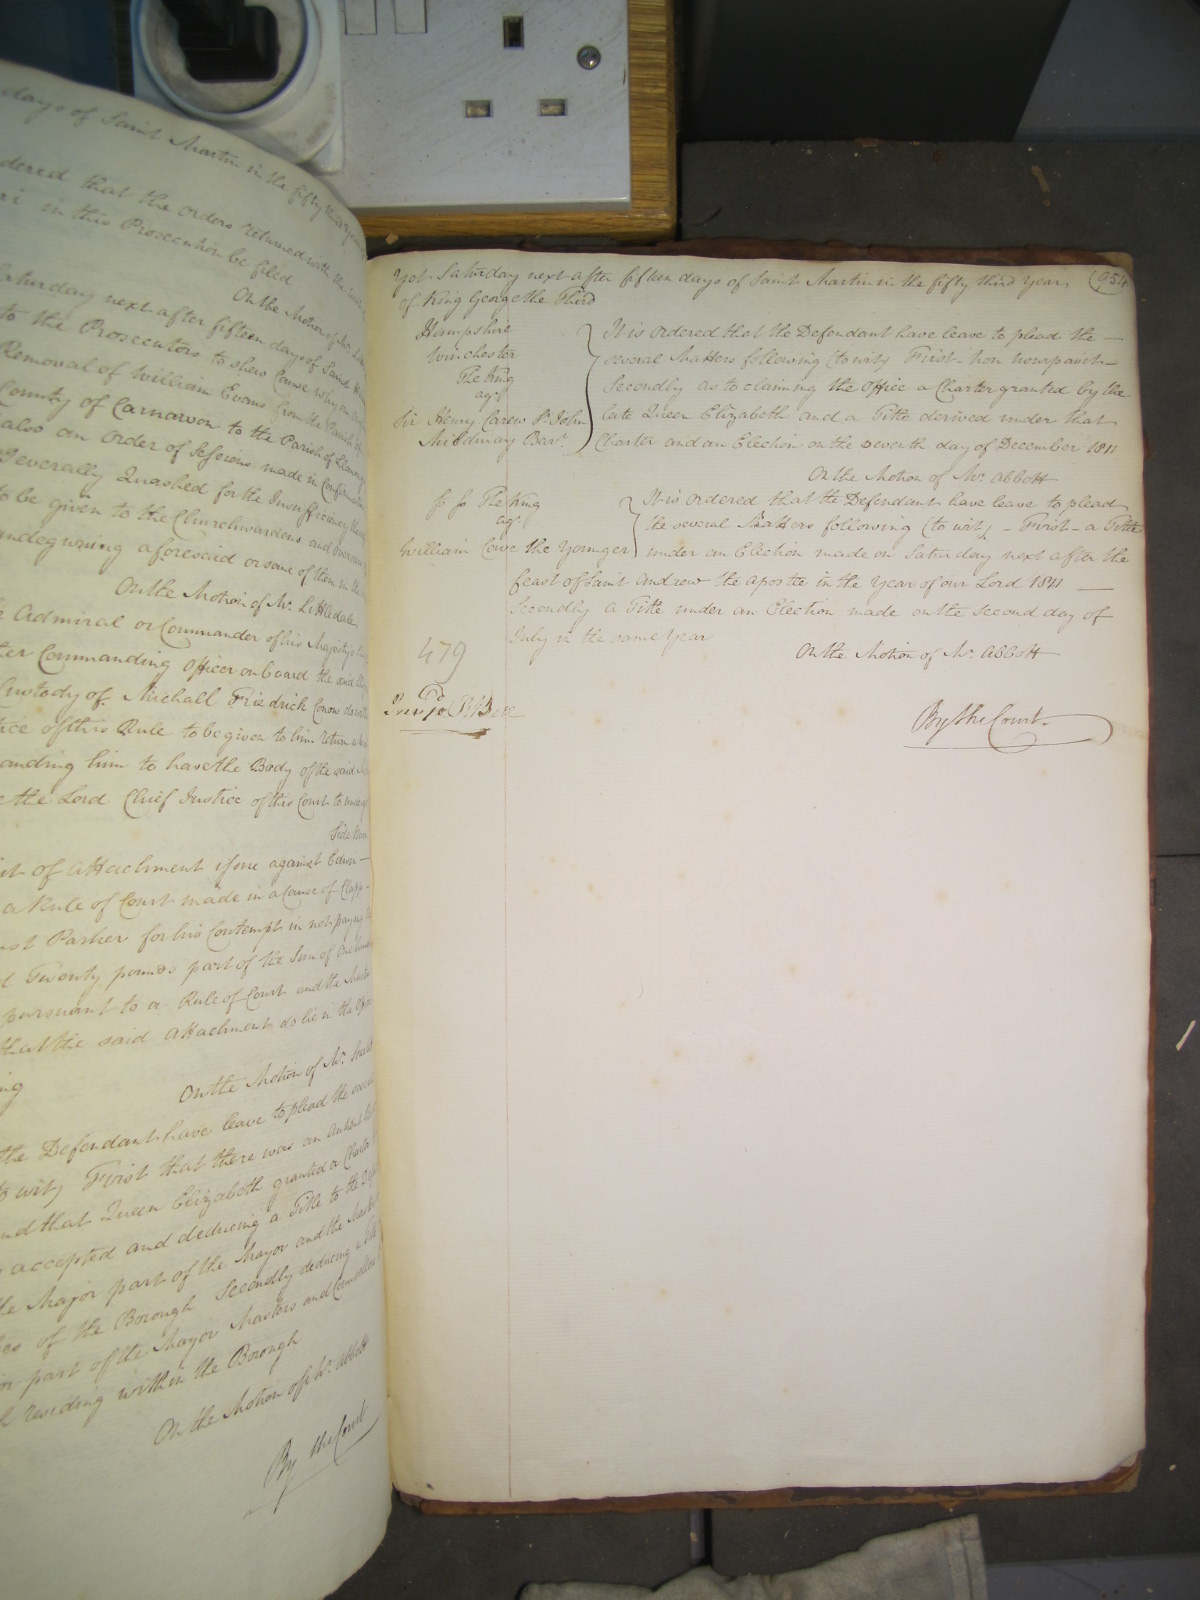 days of Saint Martin in the fifty third year
dered that the orders returned with the
ari in this Prosecution be filed
On the Motion of Mr.
Saturday next after fifteen days of Saint
to the Prosecutors to shew Cause why an
Removal of William Evans from the Parish of
County of Carnarvon to the Parish of
also an order of Sessions made in Confirmation
severally Quashed for the Insufficiency
to be given to the Churchwardens and Overseers
andegwning aforesaid or some of them in the
On the Motion of Mr. Littledale
e Admiral or Commander of his Majesty's
ter Commanding Officer on board the said
Custody of Michall Friedrick Conow
tice of this Rule to be given to him return
anding him to have the Body of the said
e the Lord Chief Justice of this Court to
Side Bar
it of Attachment issue against Edw
a Rule of Court made in a Cause of Clapp
nst Parker for his Contempt in not paying
d Twenty pounds part of the Sum of One
pursuant to a Rule of Court and the
that the said Attachment do lie in the
ng
On the Motion of Mr.
the Defendant have leave to plead the
to wit) First that there was an
nd that Queen Elizabeth granted a Charter
accepted and deducing a Title to the
he Major part of the Mayor and the
of the Borough Secondly deducing a
or part of the Mayor Masters and Counsellors
residing within the Borough
On the Motion of Mr. Abbott
By the Court
Yet Saturday next after fifteen days of Saint Martin in the fifty third Year (954
of King George the Third
Hampshire
Winchester
The King
agt.
Sir Henry Carew St. John
Mildmay Bart.
It is ordered that the Defendant have leave to plead the
several Matters following (to wit) First non usurpavit
Secondly as to claiming the Office a Charter granted by the
late Queen Elizabeth and a Title derived under that
Charter and an Election on the seventh day of December 1811
On the Motion of Mr. Abbott
The King
agt.
William Lowe the Younger
It is ordered that the Defendant have leave to plead
the several Matters following (to wit) First a Title
under an Election made on Saturday next after the
feast of Saint Andrew the Apostle in the Year of our Lord 1811
Secondly a Title under an Election made on the second day of
July in the same Year
On the Motion of Mr. Abbott
479
By the Court